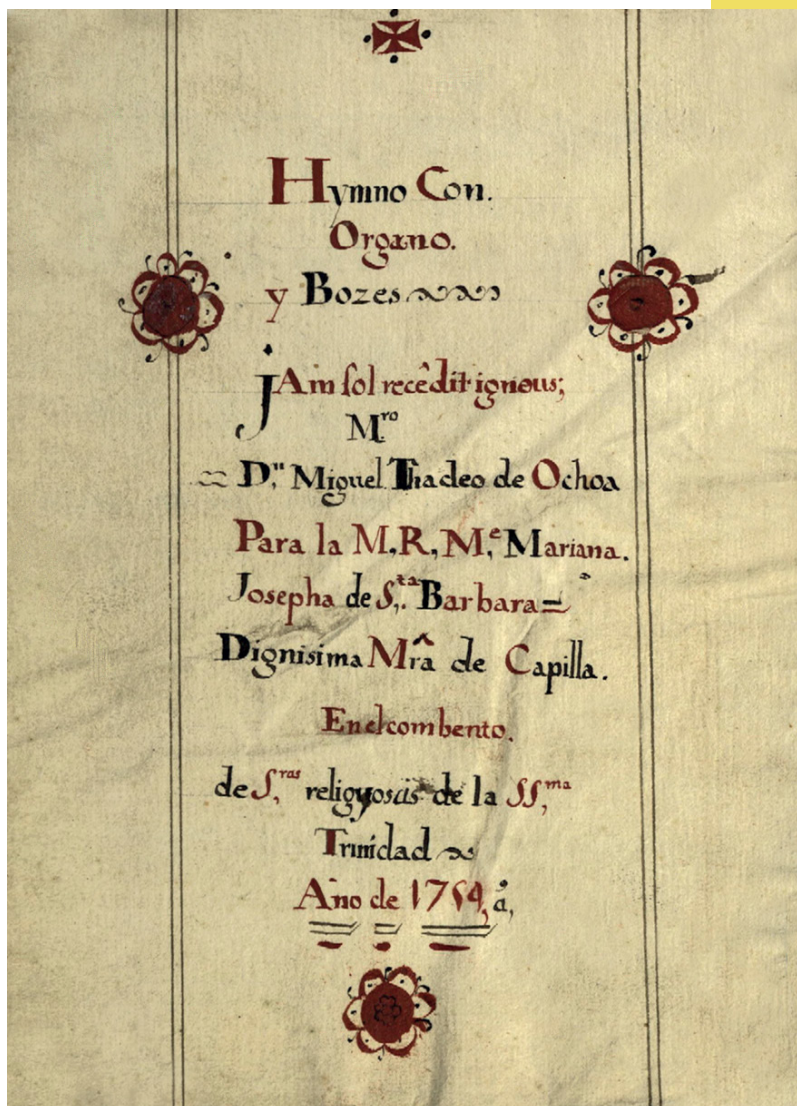 Hymno Con.
Organo.
y Bozes
jAm sol recêdit igneus;
M.ro
= D.n Miguel Thadeo de Ochoa
Para la M. R, M.e Mariana.
Josepha de S.ta Barbara=
Dignisima Mrâ de Capilla.
En el combento.
de S,ras religyosas de la SS,ma
Trinidad
Año de 1754, å,